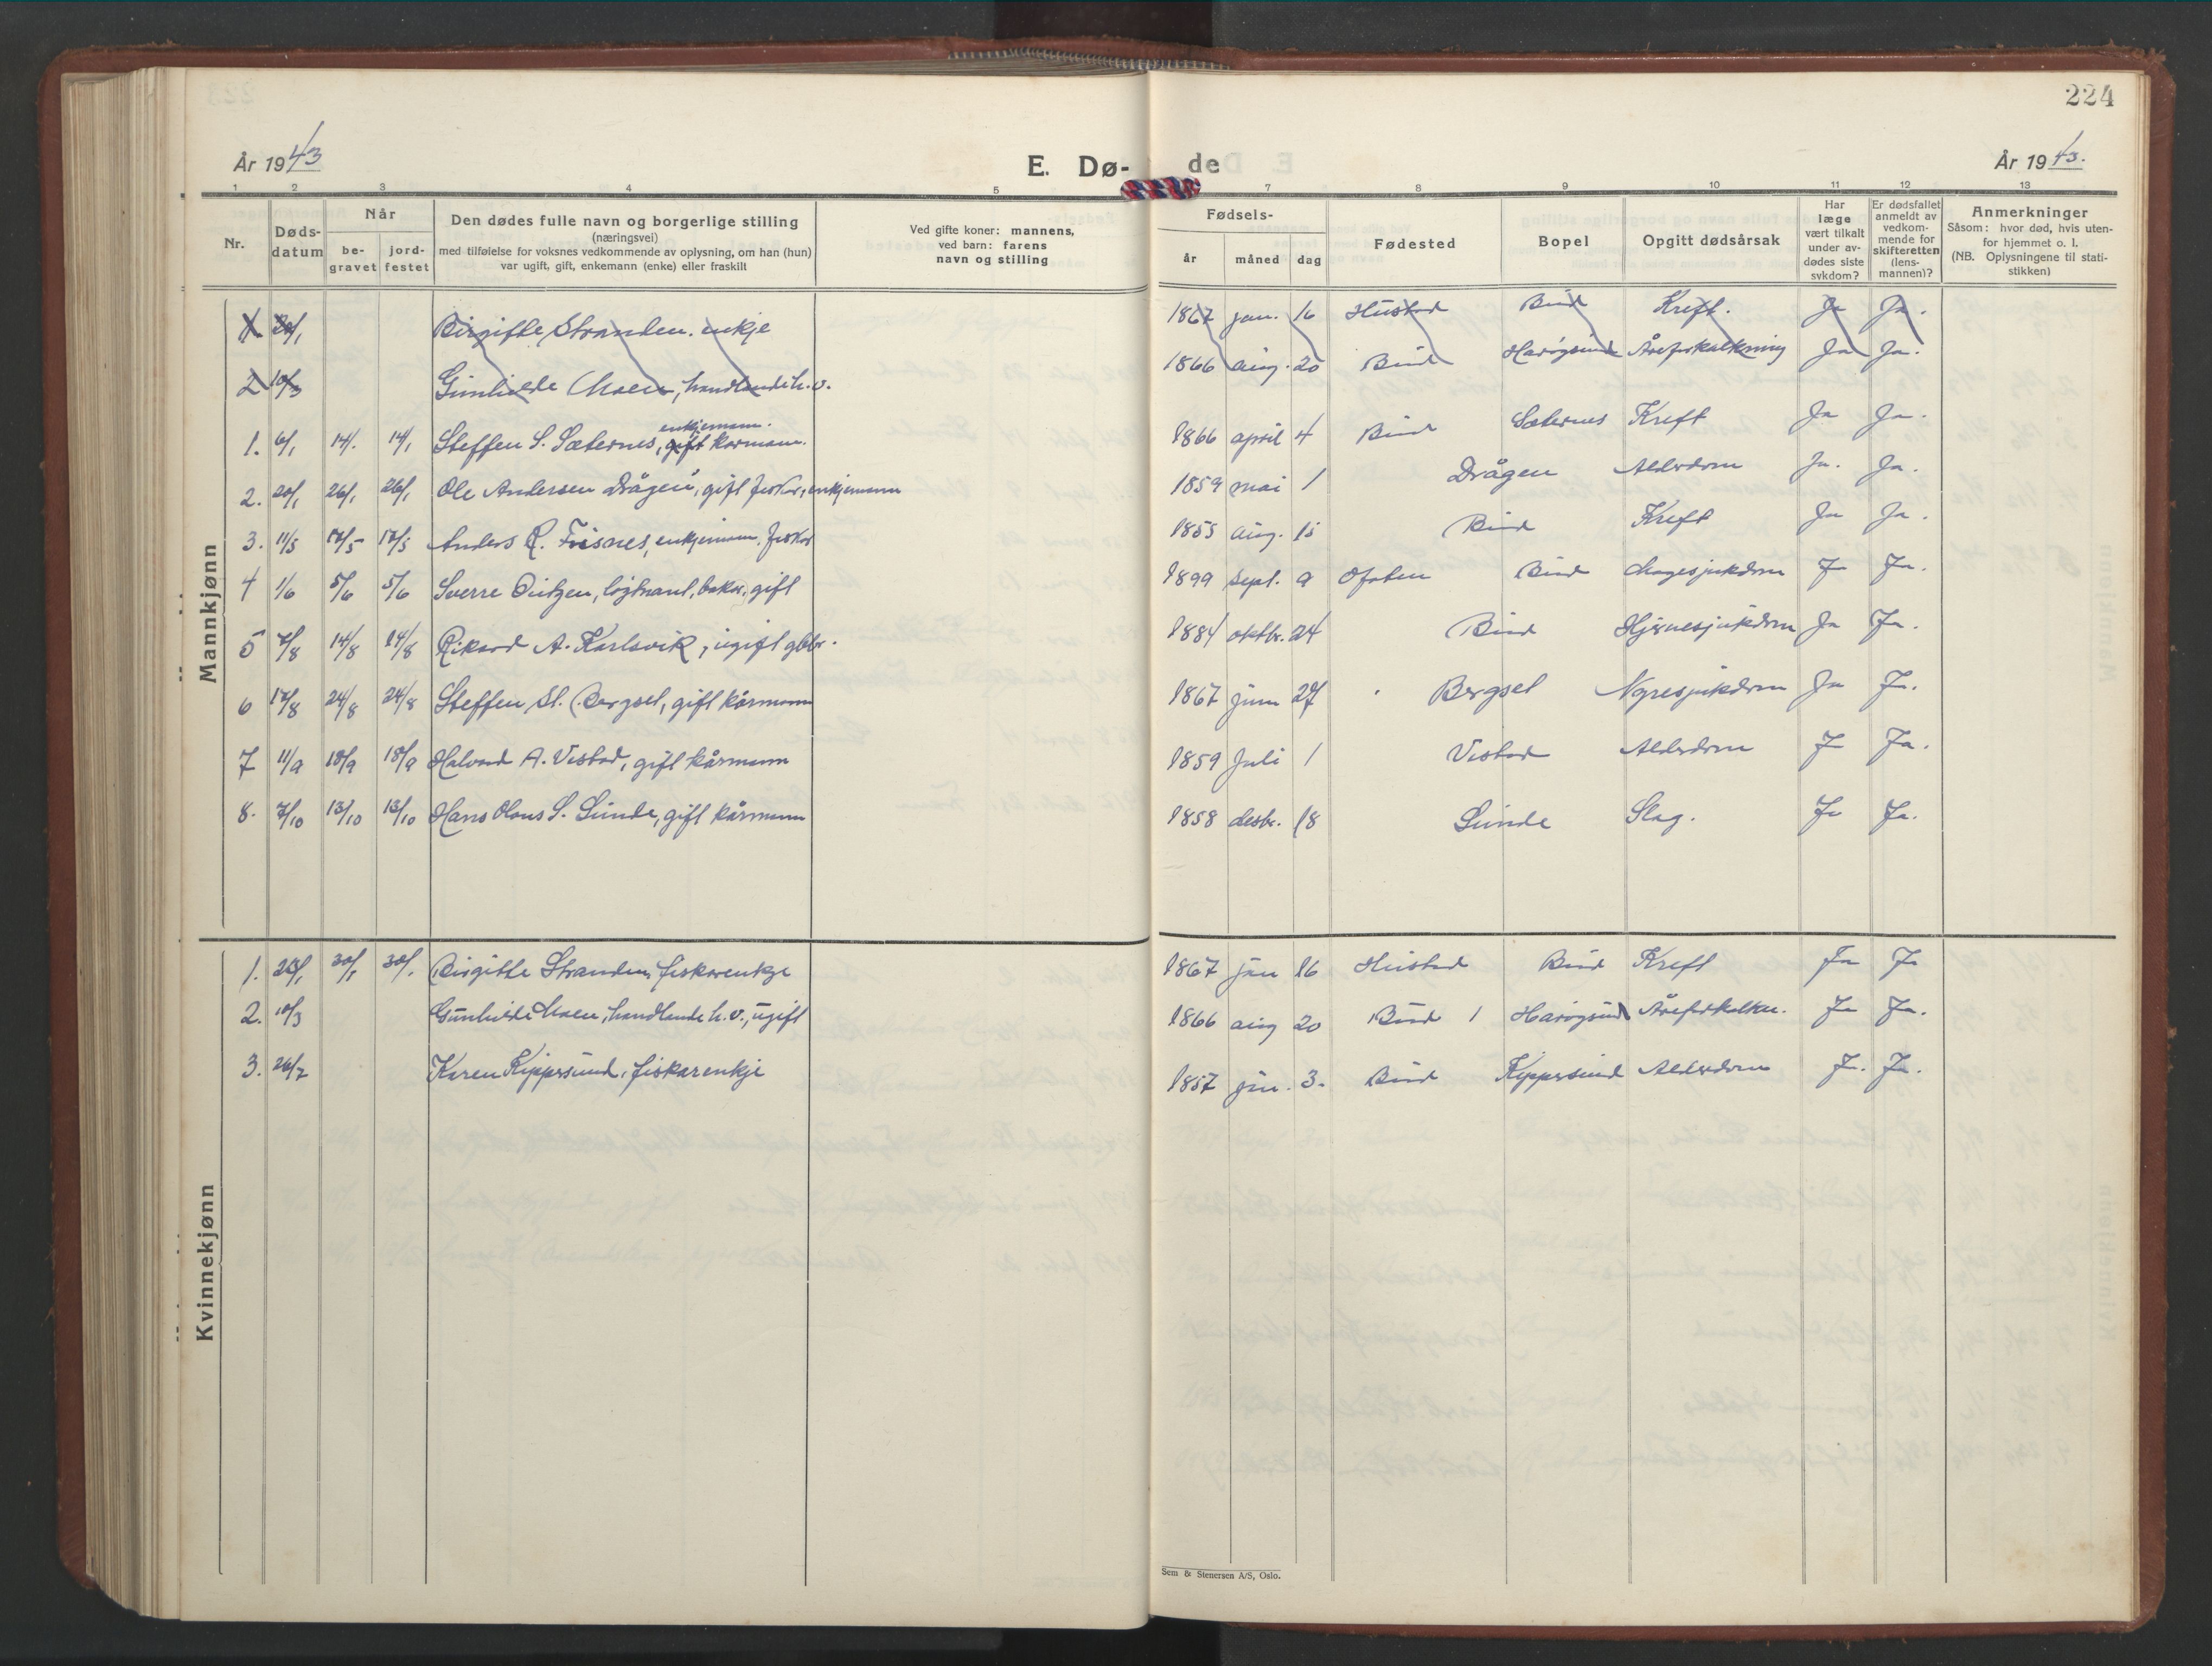 224
År 1943
E. Dø- de
År 1943.
1 2 3 4 5 7 8 9 10 11 12 13
Nr.
Døds-
datum
Når
be-
gravet
jord-
festet
Den dødes fulle navn og borgerlige stilling
(næringsvei)
med tilføielse for voksnes vedkommende av oplysning, om han (hun)
var ugift, gift, enkemann (enke) eller fraskilt
Ved gifte koner: mannens,
ved barn: farens
navn og stilling
Fødsels-
år måned dag
Fødested
Bopel
Opgitt dødsårsak
Har
læge
vært tilkalt
under av-
dødes siste
sykdom?
Er dødsfallet
anmeldt av
vedkom-
mende for
skifteretten
(lens-
mannen)?
Anmerkninger
Såsom: hvor død, hvis uten-
for hjemmet o. l.
(NB. Oplysningene til stati-
stikken)
Mannkjønn
1. 20/1 Birgitte Stranden. enkje 1867 jan. 16 Hustad Bud Kreft. Ja Ja.
2 10/3 Gunhilde Moen, handlande h.v. 1866 aug. 20 Bud Harøysund Åreforkalkning Ja Ja.
enkjemann.
1. 6/1 14/. 14/1 Steffen S. Sæternes, gift kårmann. 1866 april 4 Bud Sæternes Kreft Ja Ja.
2. 20/1 26/1 26/1 Ole Andersen Drågen, gift fiskar, enkjemann 1859 mai 1 Drågen Alderdom Ja. Ja.
3. 11/5 17/5 17/5 Anders R. Trisnes, enkjemann, fiskar 1855 aug. 15 Bud Kreft Ja Ja.
4 1/6 5/6 5/6 Sverre løgtnant, baker, gift 1899 sept. 9 Ofoten Bud Magesjukdom Ja Ja.
5 7/8 14/8 14/8 Rikard A. Karlsvik, ugift gbbr. 1884 oktbr. 24 Bud Hjernesjukdom Ja Ja.
6 17/8 24/8 24/8 Steffen St. Bergset, gift kårmann 1867 juni 27 Bergset Nyresjukdom Ja Ja.
7 11/9 18/9 18/9 Halvard A. Vestad, gift kårmann 1859 Juli 1 Vestad Alderdom Ja Ja.
8. 7/10 13/10 13/10 Hans Olaus S. Sunde, gift kårmann 1858 desbr. 18 Sunde Slag. Ja Ja.
Kvinnekjønn
1. 20/1 30/1 30/. Birgitte Stranden, fiskarenkje 1867 jan 16 Hustad Bud Kreft Ja Ja
2. 10/3 Gunhilde Moen, handlande h.v., ugift 1866 aug 20 Bud Harøysund Åreforkalkn. Ja Ja.
3. 26/7 Karen Kippersund, fiskarenkje 1857 jan. 3. Bud Kippersund Alderdom Ja. Ja.
Sem & Stenersen A/S, Oslo.